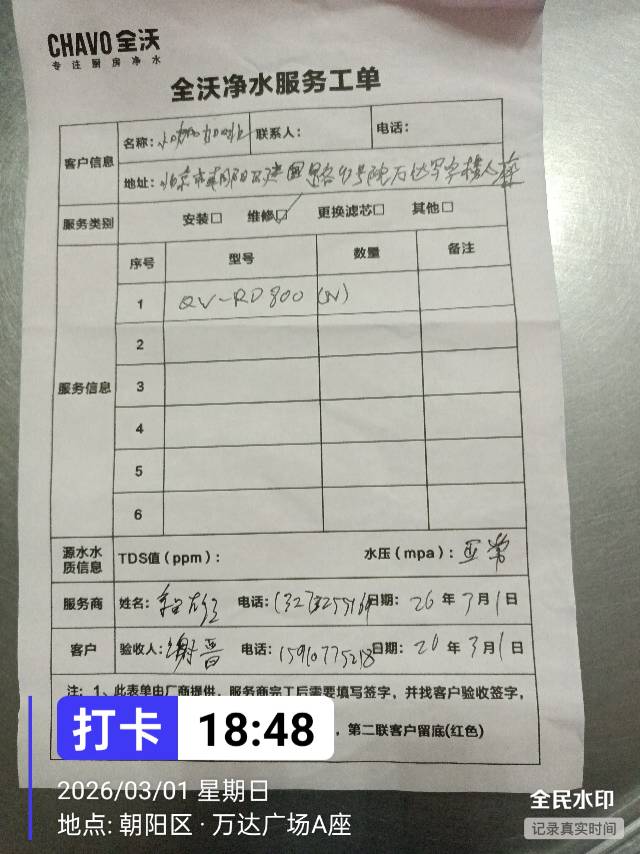 CHAVO 全沃
专注厨房净水
全沃净水服务工单
客户信息
名称: 联系人: 电话:
地址: 北京市朝阳区建国路93号院万达写字楼A座
服务类别 安装□ 维修☑ 更换滤芯□ 其他□
服务信息
序号 型号 数量 备注
1 QV-RO800 (W)
2
3
4
5
6
源水水质信息 TDS值（ppm）: 水压（mpa）: 正常
服务商 姓名: 电话: 日期: 26年3月1日
客户 验收人: 谢晋 电话: 15910775218 日期: 20年3月1日
注: 1、此表单由厂商提供，服务商完工后需要填写签字，并找客户验收签字，
，第二联客户留底(红色)
打卡 18:48
2026/03/01 星期日
地点: 朝阳区·万达广场A座
全民水印
记录真实时间